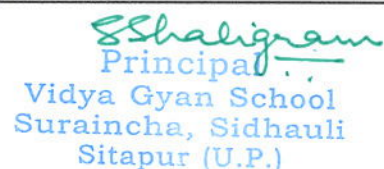 SShaligram
Principal
Vidya Gyan School
Suraincha, Sidhauli
Sitapur (U.P.)